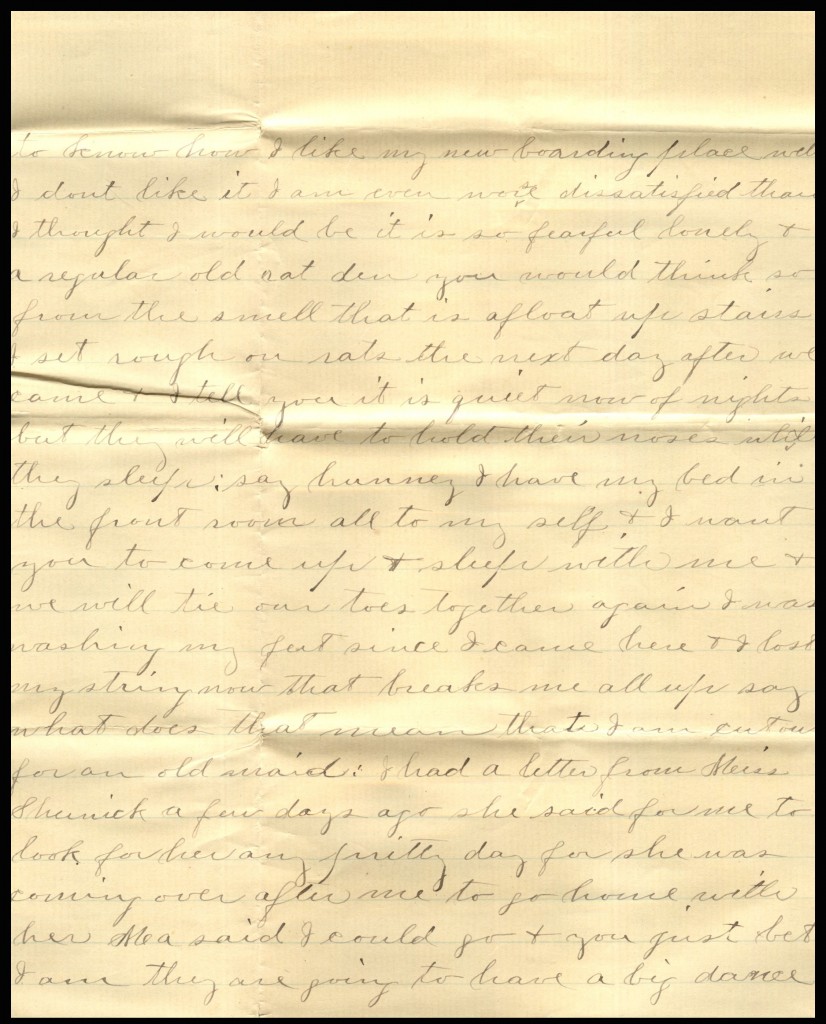 to know how I like my new boarding place well
I dont like it I am even worse dissatisfied than
I thought I would be it is so fearful lonely &
a regular old rat den you would think so
from the smell that is afloat up stairs
I set rough on rats the next day after we
came & I tell you it is quiet now of nights
but they will have to hold their noses while
they sleep; say hunney I have my bed in
the front room all to my self & I want
you to come up & sleep with me &
we will tie our toes together again I was
washing my feet since I came here & I lost
my string now that breaks me all up say
what does that mean that I am cut out
for an old maid; I had a letter from Meiss
a few days ago she said for me to
look for her any pritty day for she was
coming over after me to go home with
her Mea said I could go & you just bet
I am they are going to have a big dance